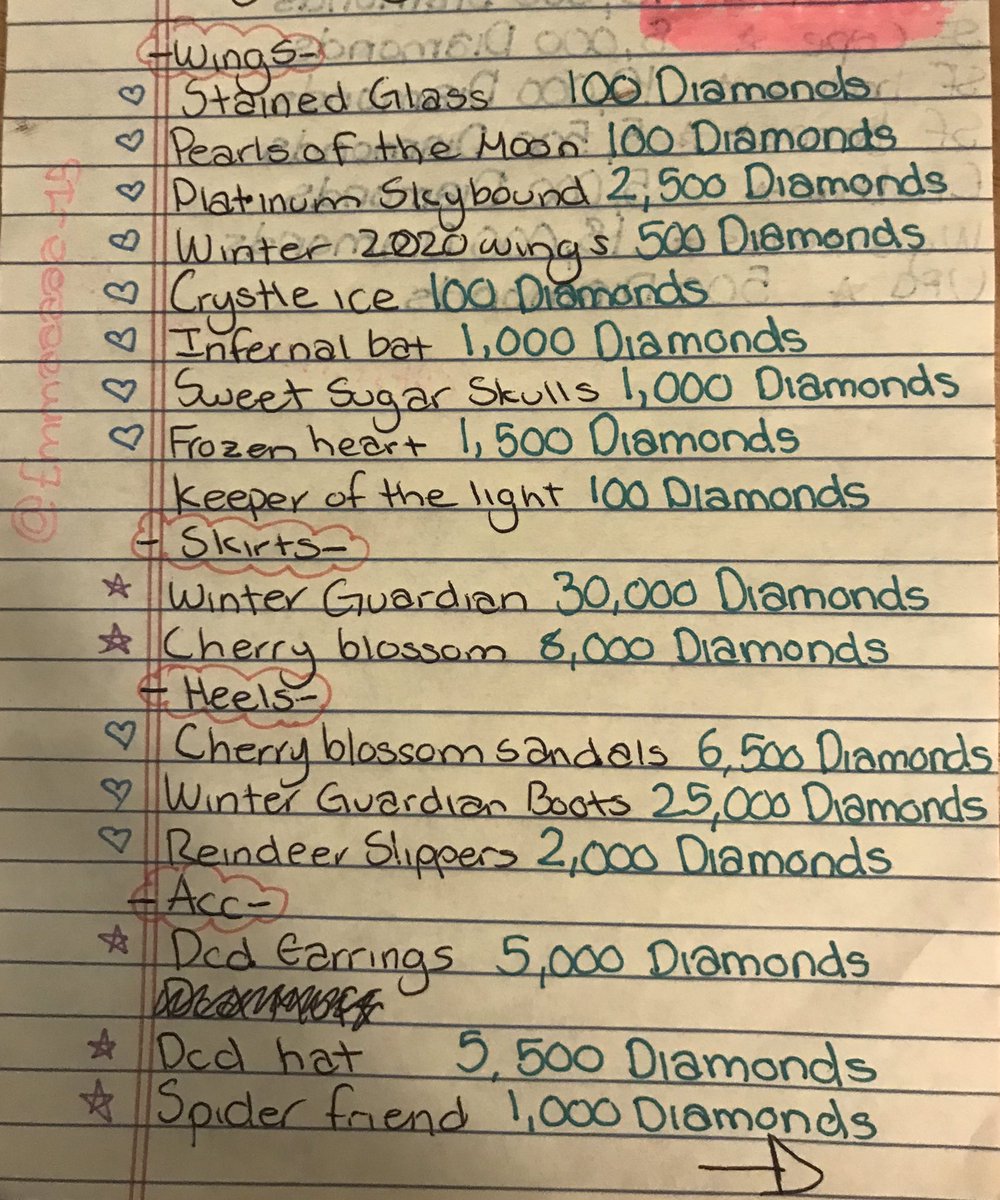 -Wings-
Stained Glass 100 Diamonds
Pearls of the Moon 100 Diamonds
Platinum Skybound 2,500 Diamonds
Winter 2020 wings 500 Diamonds
Crystle ice 100 Diamonds
Infernal bat 1,000 Diamonds
Sweet Sugar Skulls 1,000 Diamonds
Frozen heart 1,500 Diamonds
Keeper of the light 100 Diamonds
-Skirts-
Winter Guardian 30,000 Diamonds
Cherry blossom 8,000 Diamonds
-Heels-
Cherry blossom sandals 6,500 Diamonds
Winter Guardian Boots 25,000 Diamonds
Reindeer Slippers 2,000 Diamonds
-Acc-
Dcd Earrings 5,000 Diamonds
Dcd hat 5,500 Diamonds
Spider friend 1,000 Diamonds